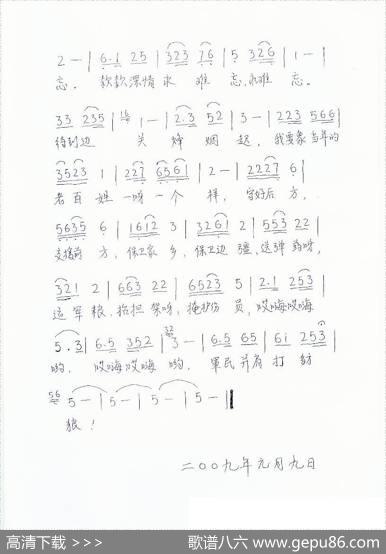 2 — | 6·1 25 | 323 76 | 5 326 | 1 — |
忘。 款款深情永 难 忘,永难 忘。
33 235 | 1 — | 2·3 52 | 3 — | 223 566 |
待到边 关 烽 烟 起, 我要象当年的
3523 1 | 227 6561 | 2 — | 2227 6 |
老百 姓 一呀一个 样, 守好后 方,
5635 6 | 1612 3 | 3261 2 | 553 22 |
支援前 方,保卫家 乡,保卫边 疆,送弹药呀,
321 2 | 663 22 | 6523 5 | 2·1 253 |
运军 粮,抬担架呀,掩护伤 员,哎嗨哎嗨
5·3 | 6·5 352 | 3 — | 6·5 65 | 61 253 |
哟, 哎嗨哎嗨 哟, 軍民并肩 打 豺
56 5 — | 5 — | 5 — | 5 — ‖
狼!
二〇〇九年元月九日
高清下载 >>> 歌谱八六 www.gepu86.com